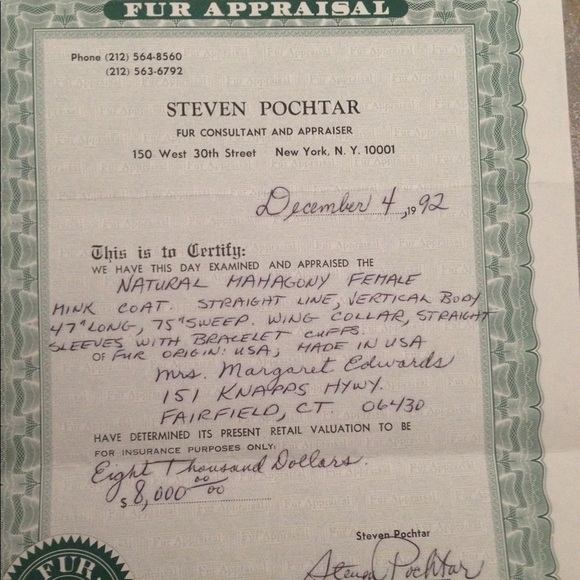 FUR APPRAISAL
Phone (212) 564-8560
(212) 563-6792
STEVEN POCHTAR
FUR CONSULTANT AND APPRAISER
150 West 30th Street New York, N. Y. 10001
December 4, 1992
This is to Certify:
WE HAVE THIS DAY EXAMINED AND APPRAISED THE
NATURAL MAHAGONY FEMALE
MINK COAT. STRAIGHT LINE, VERTICAL BODY
47" LONG, 75" SWEEP. WING COLLAR, STRAIGHT
SLEEVES WITH BRACELET CUFFS.
OF FUR ORIGIN: USA, MADE IN USA
Mrs. Margaret Edwards
151 KNAPPS HYWY.
FAIRFIELD, CT. 06430
HAVE DETERMINED ITS PRESENT RETAIL VALUATION TO BE
FOR INSURANCE PURPOSES ONLY:
Eight Thousand Dollars.
$ 8,000 00/00
Steven Pochtar
Steven Pochtar
FUR